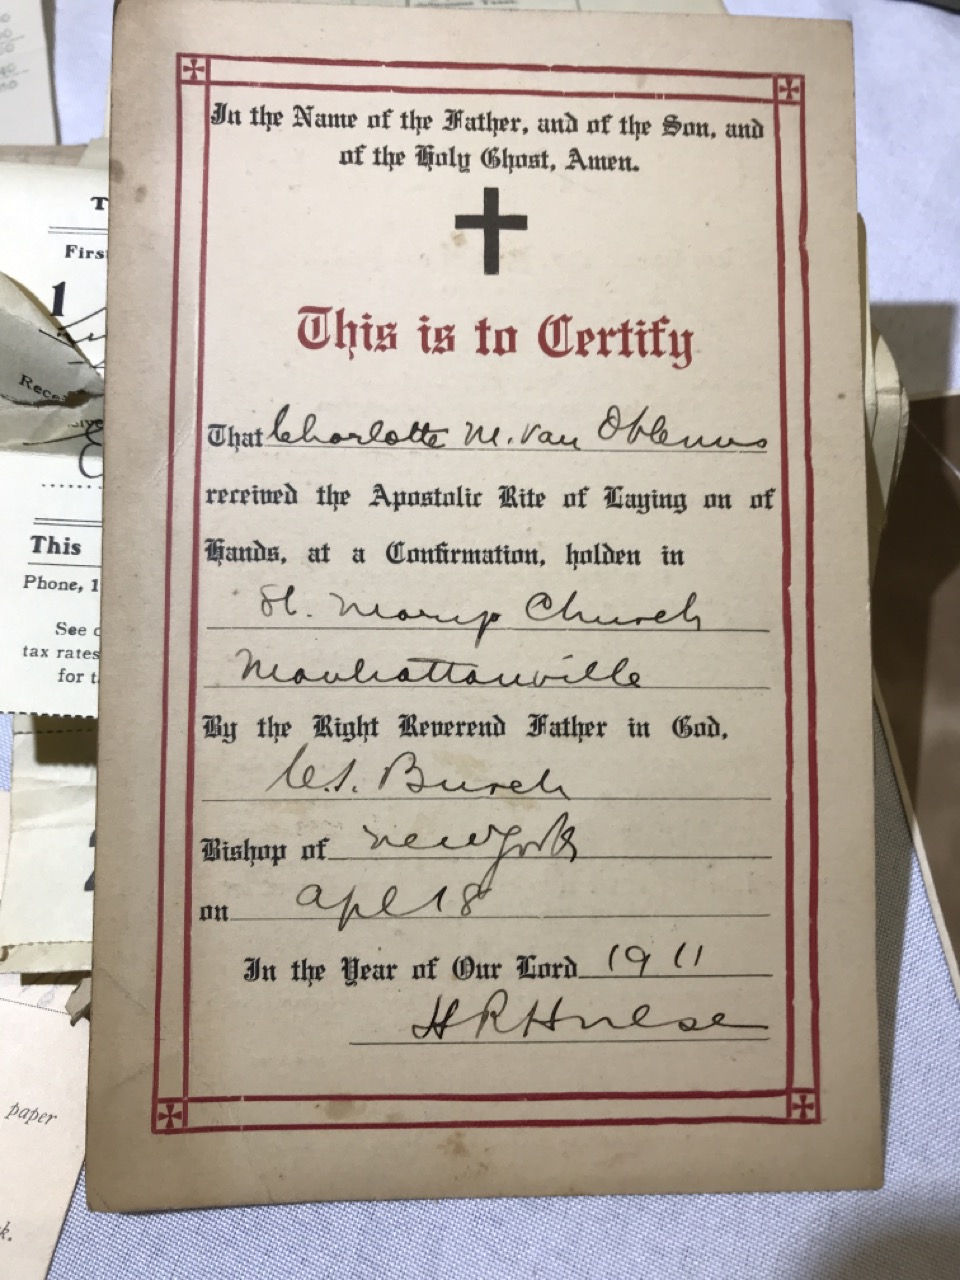 In the Name of the Father, and of the Son, and
of the Holy Ghost, Amen.
This is to Certify
That Charlotte M. Van Oblenus
received the Apostolic Rite of Laying on of
Hands, at a Confirmation, holden in
St. Marys Church
Manhattanville
By the Right Reverend Father in God,
C.S. Burch
Bishop of New York
on Apl 18
In the Year of Our Lord 1911
H R Hulse
First
1
Rece
This
Phone, 1
See
tax rates
for t
paper
k.